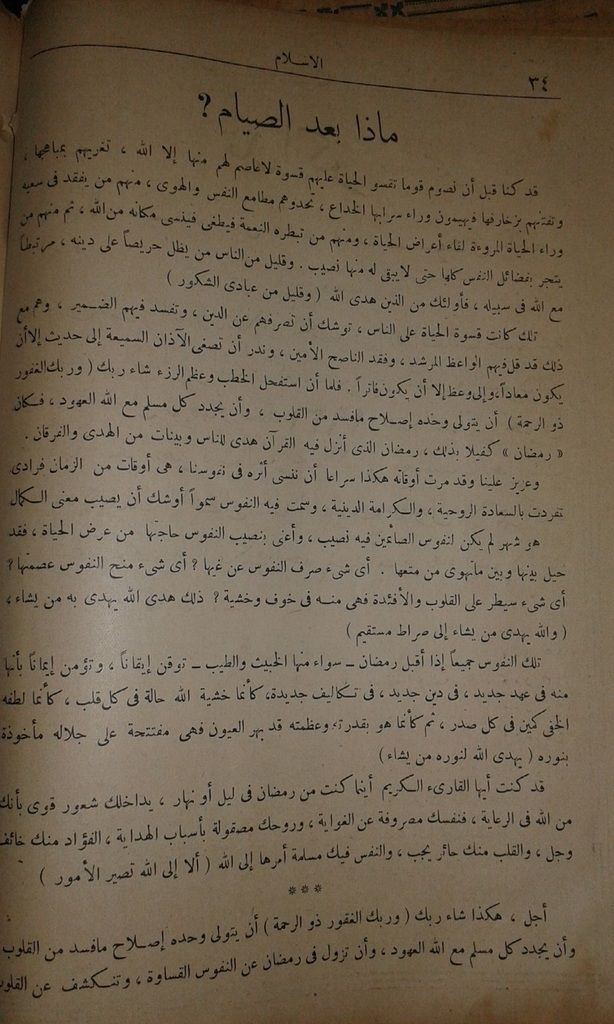 الاسلام
٣٤
ماذا بعد الصيام ؟
قد كنا قبل أن نصوم قوما تقسو الحياة عليهم قسوة لاعاصم لهم منها إلا الله ، تغريهم بمباهجها ،
وتفتنهم بزخارفها فيهيمون وراء سرابها الخداع ، تحدوهم مطامع النفس والهوى ، منهم من يفقد فى سعيه
وراء الحياة المروءة لقاء أعراض الحياة ، ومنهم من تبطره النعمة فيطغى فينسى مكانه من الله ، ثم منهم من
يتجر بفضائل النفس كلها حتى لا يبقى له منها نصيب . وقليل من الناس من يظل حريصاً على دينه ، مرتبطاً
مع الله فى سبيله ، فأولئك من الذين هدى الله ( وقليل من عبادى الشكور )
تلك كانت قسوة الحياة على الناس ، توشك أن تصرفهم عن الدين ، وتفسد فيهم الضمير ، وهم مع
ذلك قد قل فيهم الواعظ المرشد ، وفقد الناصح الأمين ، وندر أن تصغى الآذان السميعة إلى حديث إلا أن
يكون معاداً، وإلى وعظ إلا أن يكون فاتراً . فلما أن استفحل الخطب وعظم الرزء شاء ربك ( وربك الغفور
ذو الرحمة ) أن يتولى وحده إصلاح مافسد من القلوب ، وأن يجدد كل مسلم مع الله العهود ، فكان
« رمضان » كفيلا بذلك ، رمضان الذى أنزل فيه القرآن هدى للناس وبينات من الهدى والفرقان .
وعزيز علينا وقد مرت أوقاته هكذا سراعا أن ننسى أثره فى نفوسنا ، هى أوقات من الزمان فرادى
تفردت بالسعادة الروحية ، والكرامة الدينية ، وسمت فيه النفوس سمواً أوشك أن يصيب معنى الكمال
هو شهر لم يكن لنفوس الصائمين فيه نصيب ، وأعنى بنصيب النفوس حاجتها من عرض الحياة ، فقد
حيل بينها وبين ماتهوى من متعها . أى شىء صرف النفوس عن غيها ؟ أى شىء منح النفوس عصمتها ؟
أى شىء سيطر على القلوب والأفئدة فهى منه فى خوف وخشية ؟ ذلك هدى الله يهدى به من يشاء ،
( والله يهدى من يشاء إلى صراط مستقيم )
تلك النفوس جميعاً إذا أقبل رمضان ــ سواء منها الخبيث والطيب ــ توقن إيقاناً ، وتؤمن إيماناً بأنها
منه فى عهد جديد ، فى دين جديد ، فى تكاليف جديدة، كأنما خشية الله حالة فى كل قلب ، كأنما لطفه
الخفى كمين فى كل صدر ، ثم كأنما هو بقدرته وعظمته قد بهر العيون فهى مفتتحة على جلاله مأخوذة
بنوره ( يهدى الله لنوره من يشاء )
قد كنت أيها القارىء الكريم أينما كنت من رمضان فى ليل أو نهار ، يداخلك شعور قوى بأنك
من الله فى الرعاية ، فنفسك مصروفة عن الغواية ، وروحك مصقولة بأسباب الهداية ، الفؤاد منك خائف
وجل ، والقلب منك حائر يجب ، والنفس فيك مسلمة أمرها إلى الله ( ألا إلى الله تصير الأمور )
* * *
أجل ، هكذا شاء ربك ( وربك الغفور ذو الرحمة ) أن يتولى وحده إصلاح مافسد من القلوب
وأن يجدد كل مسلم مع الله العهود ، وأن تزول فى رمضان عن النفوس القساوة ، وتنكشف عن القلوب